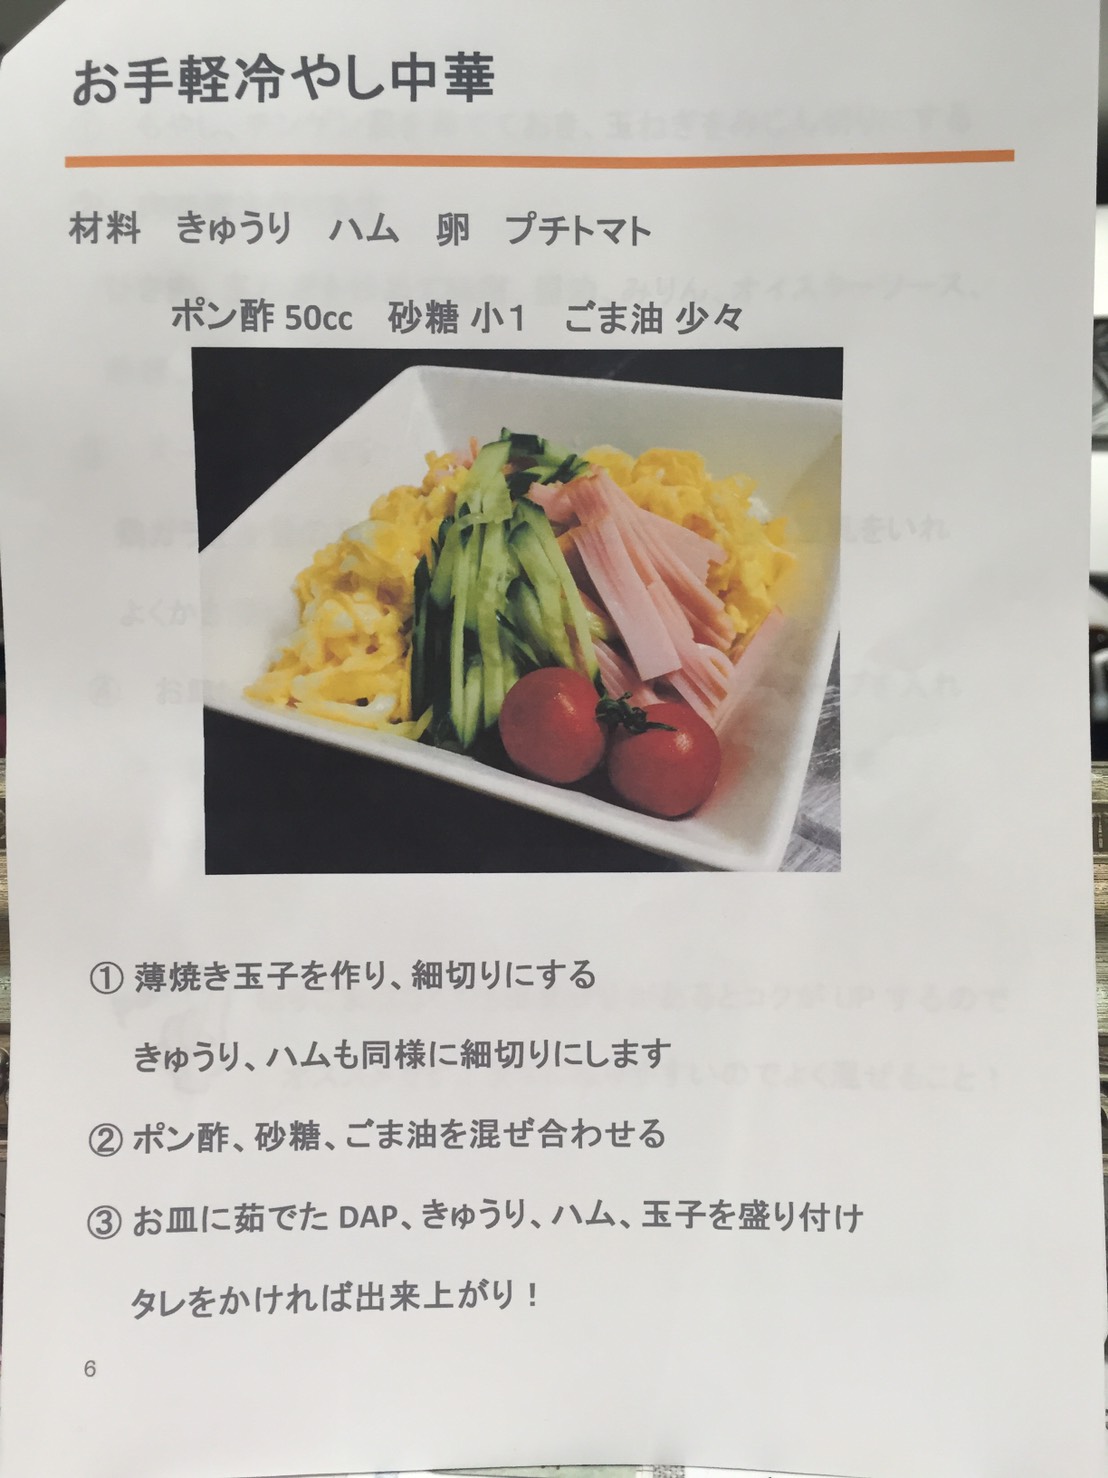 お手軽冷やし中華
材料　きゅうり　ハム　卵　プチトマト
ポン酢 50cc　砂糖 小１　ごま油 少々
① 薄焼き玉子を作り、細切りにする
きゅうり、ハムも同様に細切りにします
② ポン酢、砂糖、ごま油を混ぜ合わせる
③ お皿に茹でた DAP、きゅうり、ハム、玉子を盛り付け
タレをかければ出来上がり！
6